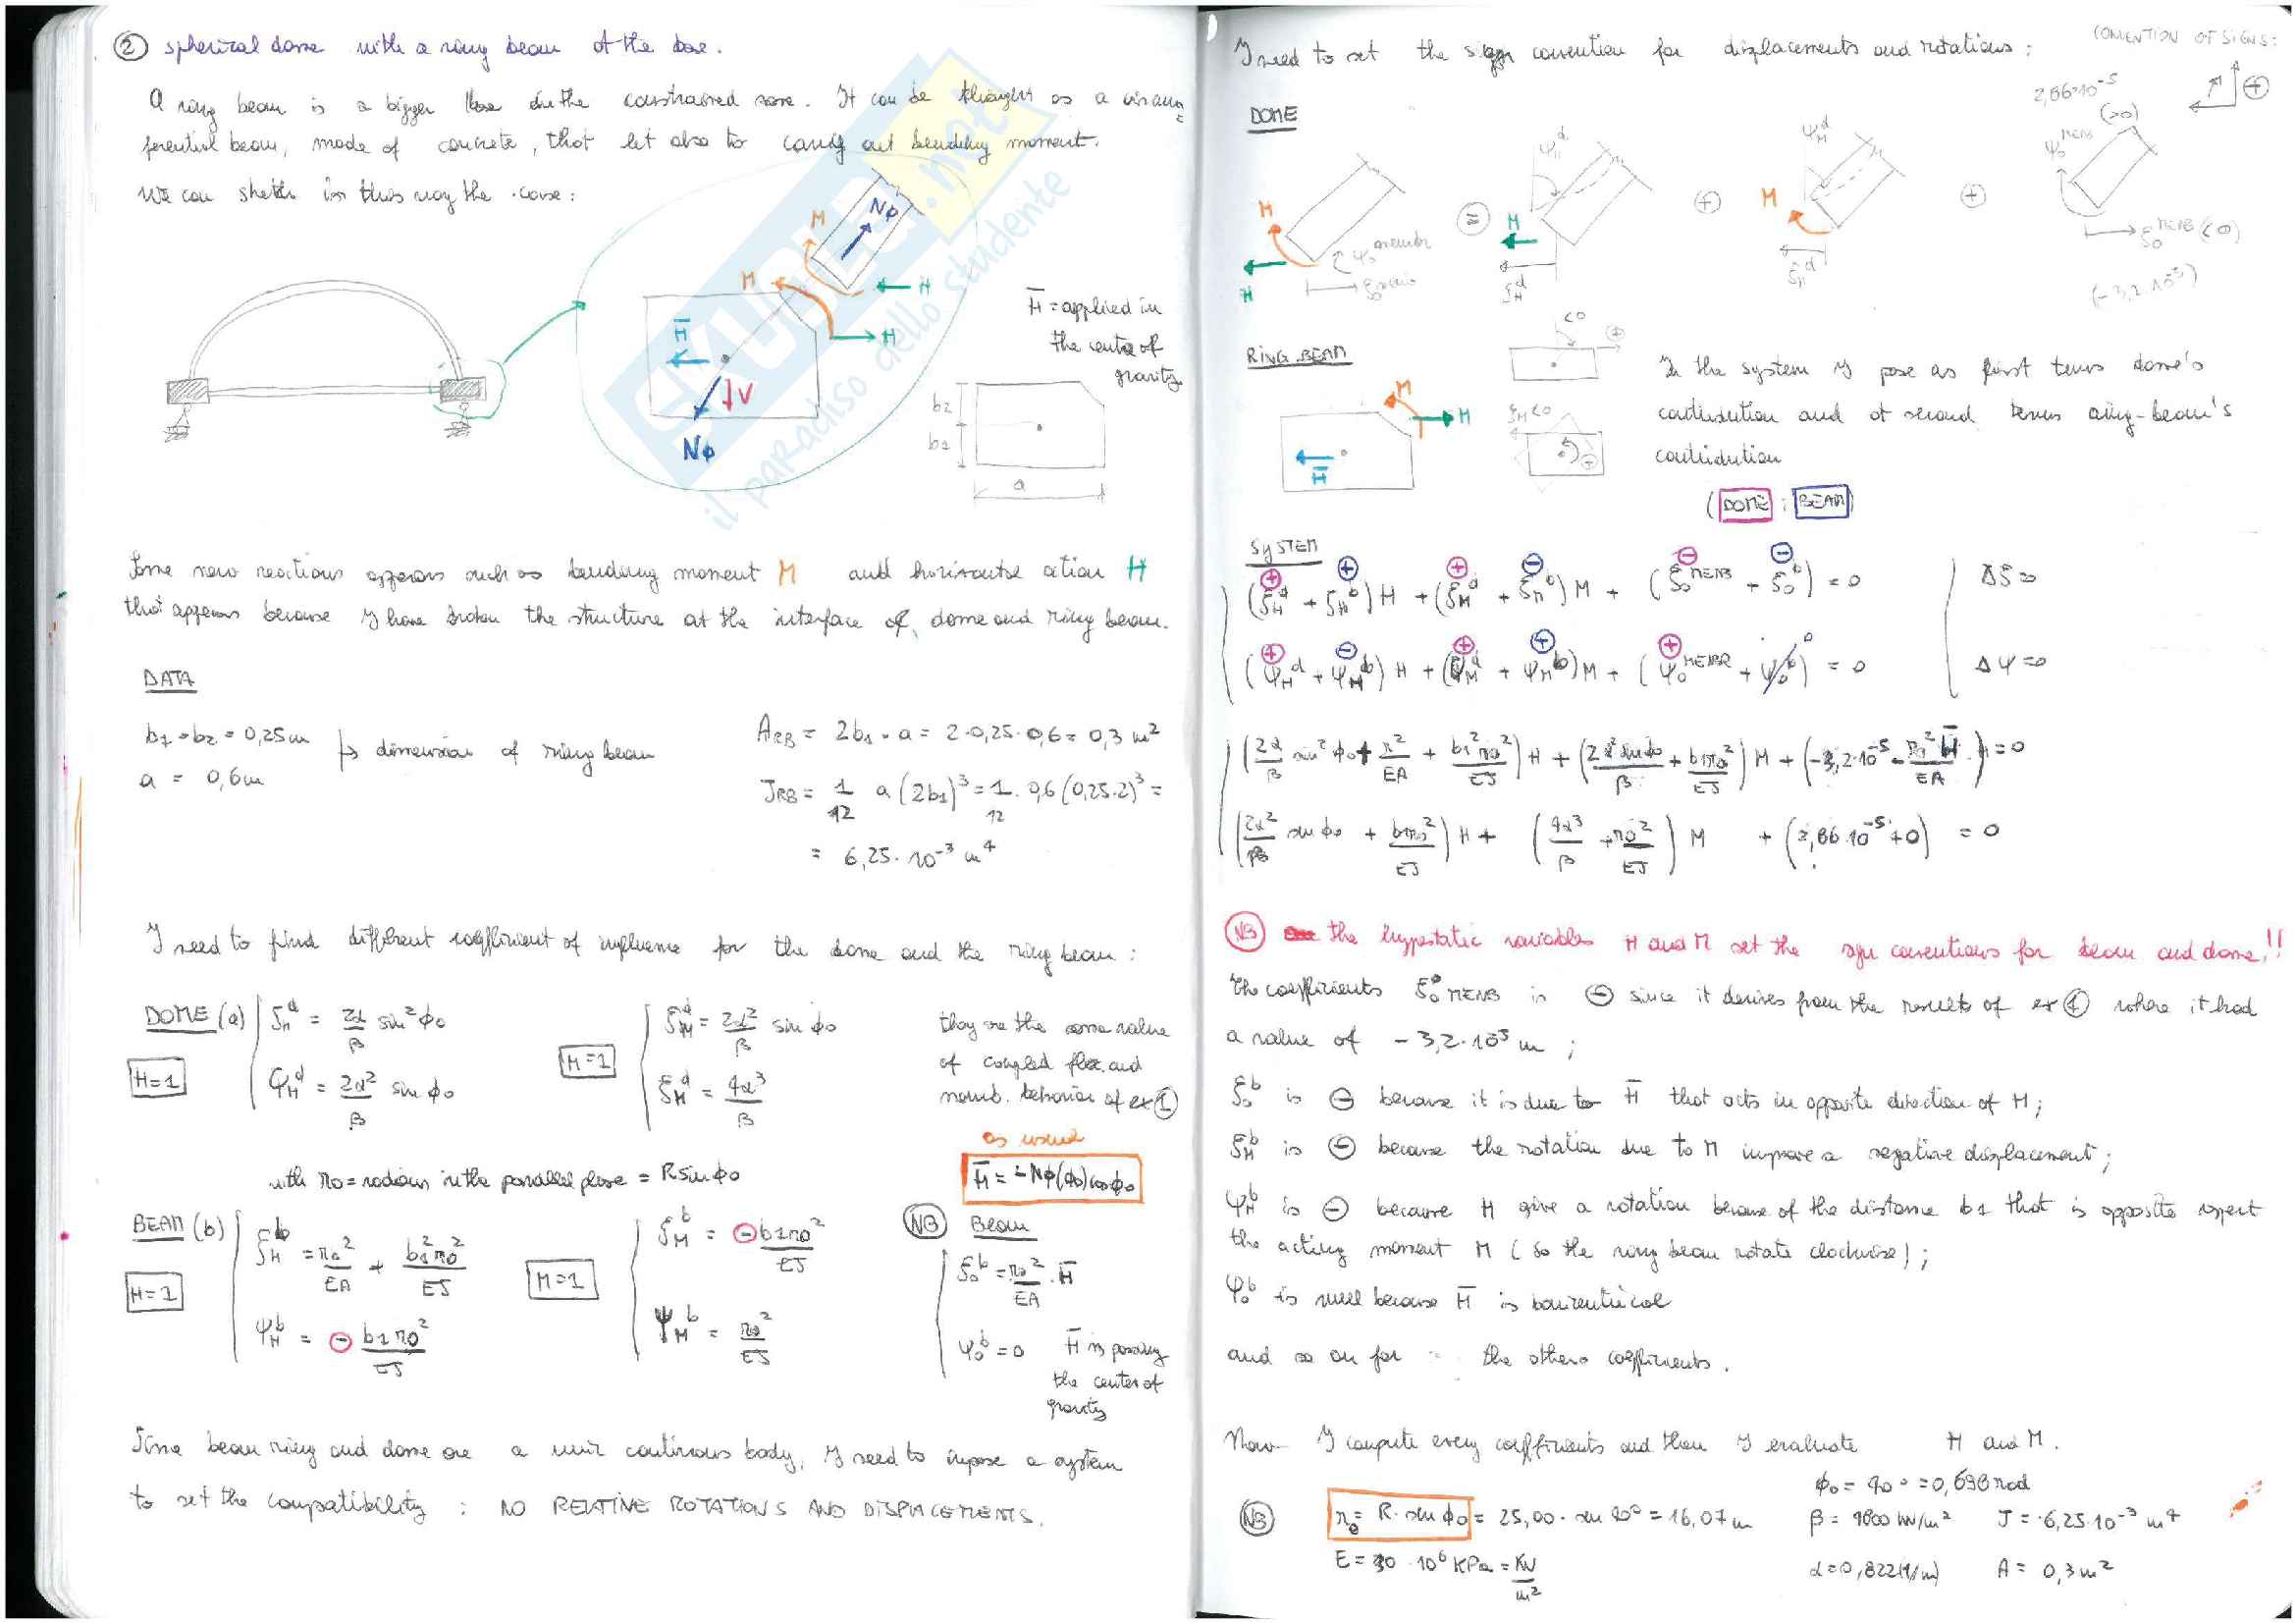 ② spherical dome with a ring beam at the base.
A ring beam is a bigger base in the constrained zone. It can be thought as a circum=
ferential beam, made of concrete, that let also to carry out bending moment.
We can sketch in this way the case:
M
Nφ
M
H
H̄
H
V
Nφ
H̄ = applied in
the centre of
gravity.
b2
b1
a
Some new reactions appears such as bending moment M and horizontal action H
that appears because I have broken the structure at the interface of dome and ring beam.
DATA
b1 = b2 = 0,25 m
a = 0,6 m
dimension of ring beam
A_RB = 2b1 · a = 2·0,25·0,6 = 0,3 m²
J_RB = 1/12 a (2b1)³ = 1/12 · 0,6 (0,25·2)³ =
= 6,25·10⁻³ m⁴
I need to find different coefficient of influence for the dome and the ring beam:
DOME (a)
H=1
ξ_H^d = 2α/β sin²φ0
φ_H^d = 2α²/β sin φ0
M=1
ξ_M^d = 2α²/β sin φ0
ξ_M^d = 4α³/β
they are the same value
of coupled flex. and
memb. behavior of ex ①
with r0 = radius in the parallel plane = R sin φ0
as usual
H̄ = -Nφ(φ0) cos φ0
BEAM (b)
H=1
ξ_H^b = r0²/EA + b1² r0²/EJ
ψ_H^b = ⊖ b1 r0²/EJ
M=1
ξ_M^b = ⊖ b1 r0²/EJ
ψ_M^b = r0²/EJ
NB Beam
ξ_0^b = r0²/EA · H̄
ψ_0^b = 0 H̄ is passing
the center of
gravity
Since beam ring and dome are a unic continuous body, I need to impose a system
to set the compatibility : NO RELATIVE ROTATIONS AND DISPLACEMENTS.
I need to set the sign convention for displacements and rotations:
CONVENTION OF SIGNS:
⊕
DOME
M
H
ψ_0^membr
=
ψ_H^d
H
ξ_H^d
⊕
ψ_M^d
M
ξ_M^d
⊕
2,86·10⁻⁵
(>0)
ψ_0^MEMB
ξ_0^MEMB (<0)
(-3,2·10⁻⁵)
RING BEAM
<0
⊕
M
H
H̄
ξ_M<0
⊕
In the system I pose as first terms dome's
contribution and at second terms ring-beam's
contribution
(DOME ; BEAM)
SYSTEM
⊕ ⊕ ⊕ ⊖ ⊖ ⊖
(ξ_H^d + ξ_H^b) H + (ξ_M^d + ξ_M^b) M + (ξ_0^MEMB + ξ_0^b) = 0 Δξ=0
⊕ ⊖ ⊕ ⊕ ⊕ 0
(ψ_H^d + ψ_H^b) H + (ψ_M^d + ψ_M^b) M + (ψ_0^MEMBR + ψ_0^b) = 0 Δψ=0
(2α/β sin²φ0 + r²/EA + b1² r0²/EJ) H + (2α² sin φ0/β + b1 r0²/EJ) M + (-3,2·10⁻⁵ - r0² H̄/EA) = 0
(2α²/β sin φ0 + b1 r0²/EJ) H + (4α³/β + r0²/EJ) M + (2,86·10⁻⁵ + 0) = 0
NB the hyperstatic variables H and M set the sign conventions for beam and dome!!
The coefficients ξ_0^MEMB is ⊖ since it derives from the results of ex ① where it had
a value of -3,2·10⁻⁵ m ;
ξ_0^b is ⊖ because it is due to H̄ that acts in opposite direction of H;
ξ_M^b is ⊖ because the rotation due to M impose a negative displacement;
ψ_H^b is ⊖ because H give a rotation because of the distance b1 that is opposite respect
the acting moment M (so the ring beam rotate clockwise);
ψ_0^b is null because H̄ is baricentrical
and so on for the others coefficients.
Now I compute every coefficients and then I evaluate H and M.
φ0 = 40° = 0,698 rad
NB r0 = R·sin φ0 = 25,00·sin 40° = 16,07 m
β = 4800 kN/m² J = 6,25·10⁻³ m⁴
E = 30·10⁶ KPa = KN/m²
α = 0,822 (1/m) A = 0,3 m²
SKUOLA.net
il paradiso dello studente